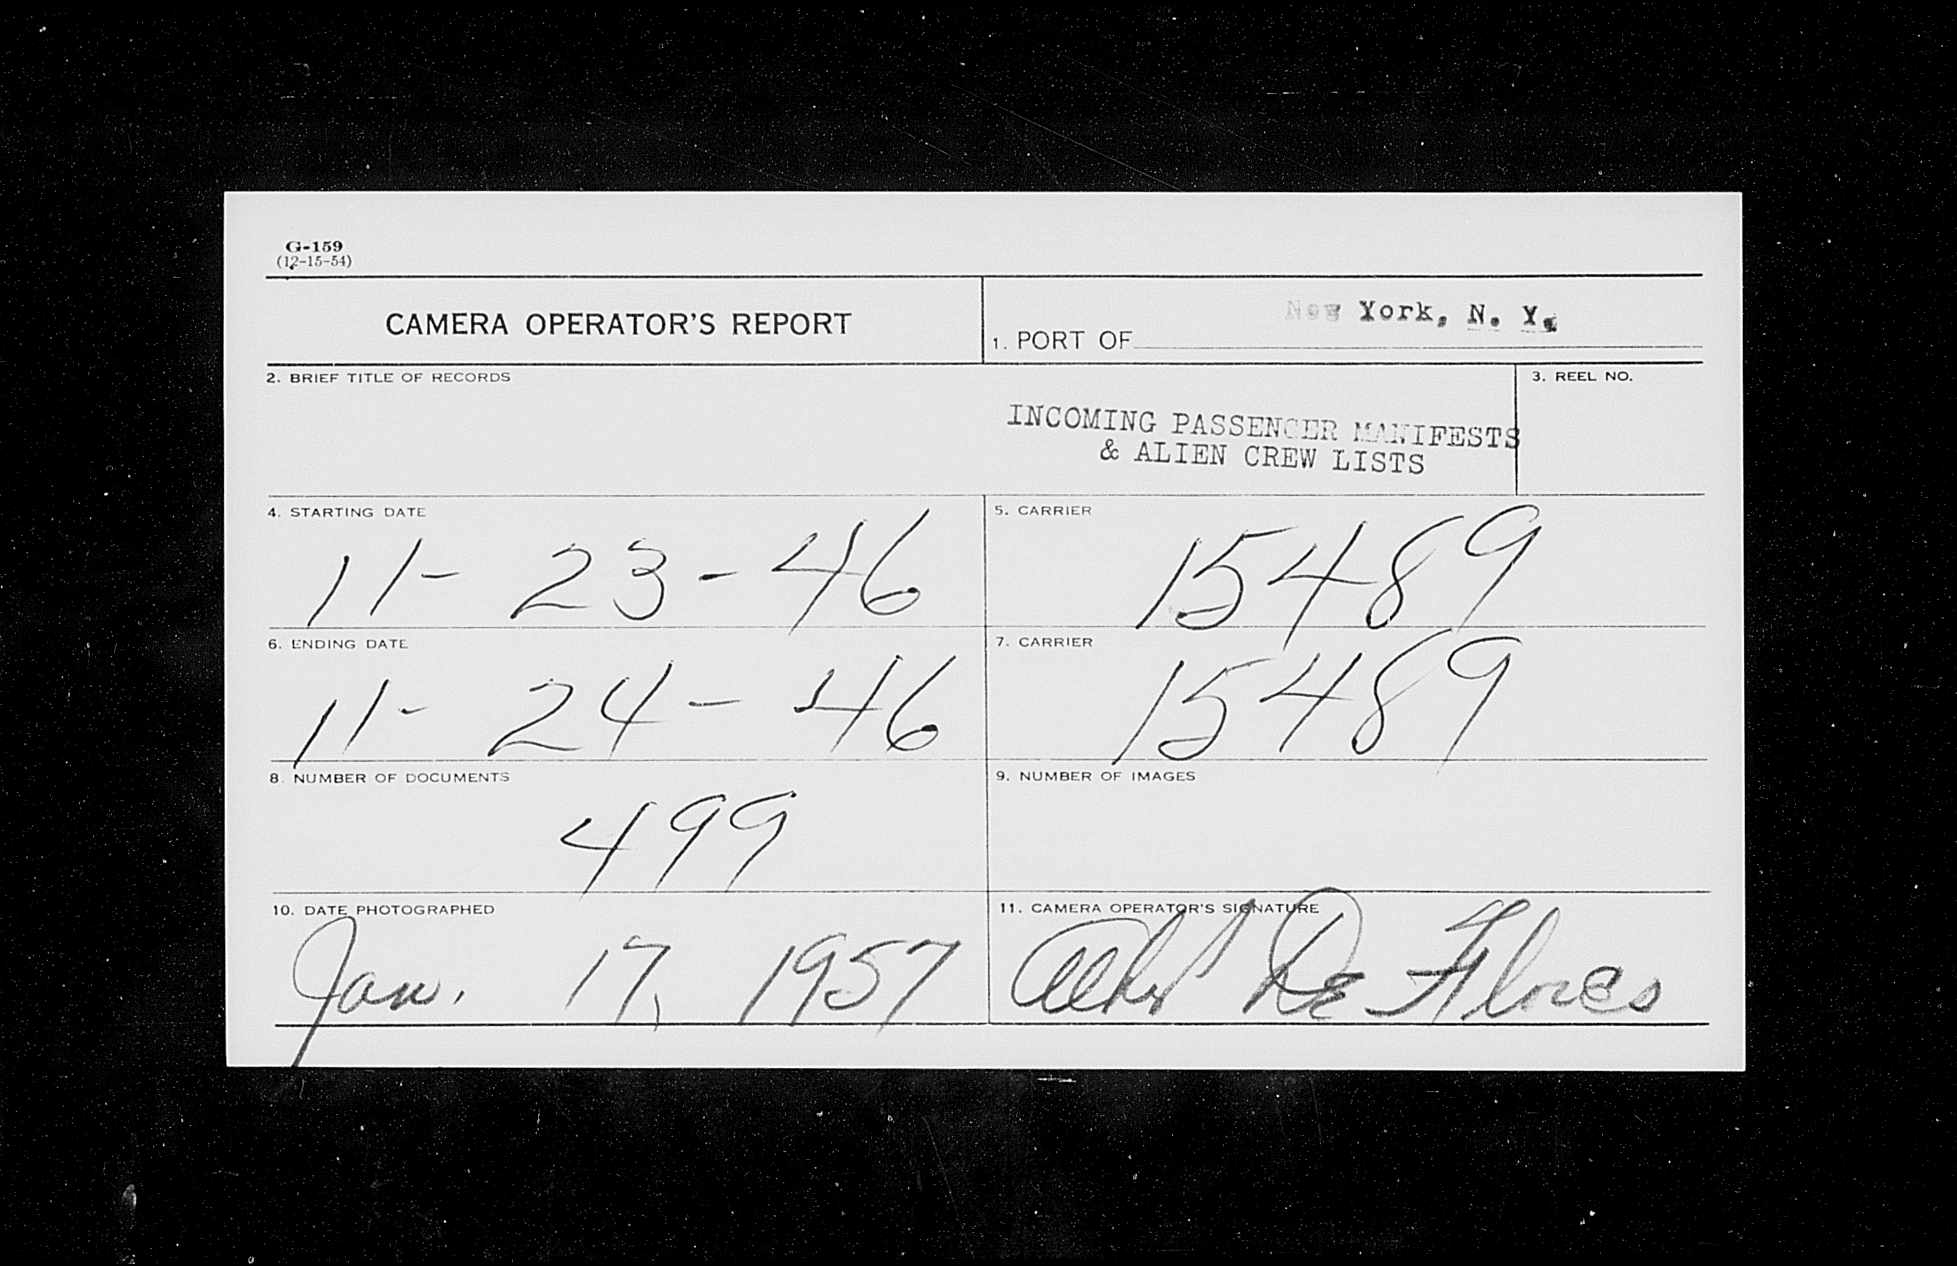 G-159
(12-15-54)
CAMERA OPERATOR'S REPORT
1. PORT OF New York, N. Y.
2. BRIEF TITLE OF RECORDS
INCOMING PASSENGER MANIFESTS
& ALIEN CREW LISTS
3. REEL NO.
4. STARTING DATE
11-23-46
5. CARRIER
15489
6. ENDING DATE
11-24-46
7. CARRIER
15489
8. NUMBER OF DOCUMENTS
499
9. NUMBER OF IMAGES
10. DATE PHOTOGRAPHED
Jan. 17, 1957
11. CAMERA OPERATOR'S SIGNATURE
De Flores